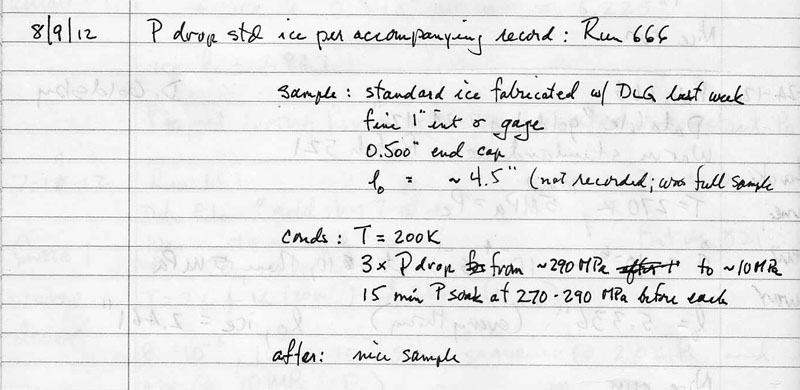 8/9/12 P drop std ice per accompanying record: Run 666
sample: standard ice fabricated w/ DLG last week
fine 1" int ø gage
0.500" end cap
l₀ = ~ 4.5" (not recorded; was full sample
conds: T = 200K
3x P drop from ~290 MPa to ~10 MPa
15 min P soak at 270-290 MPa before each
after: nice sample